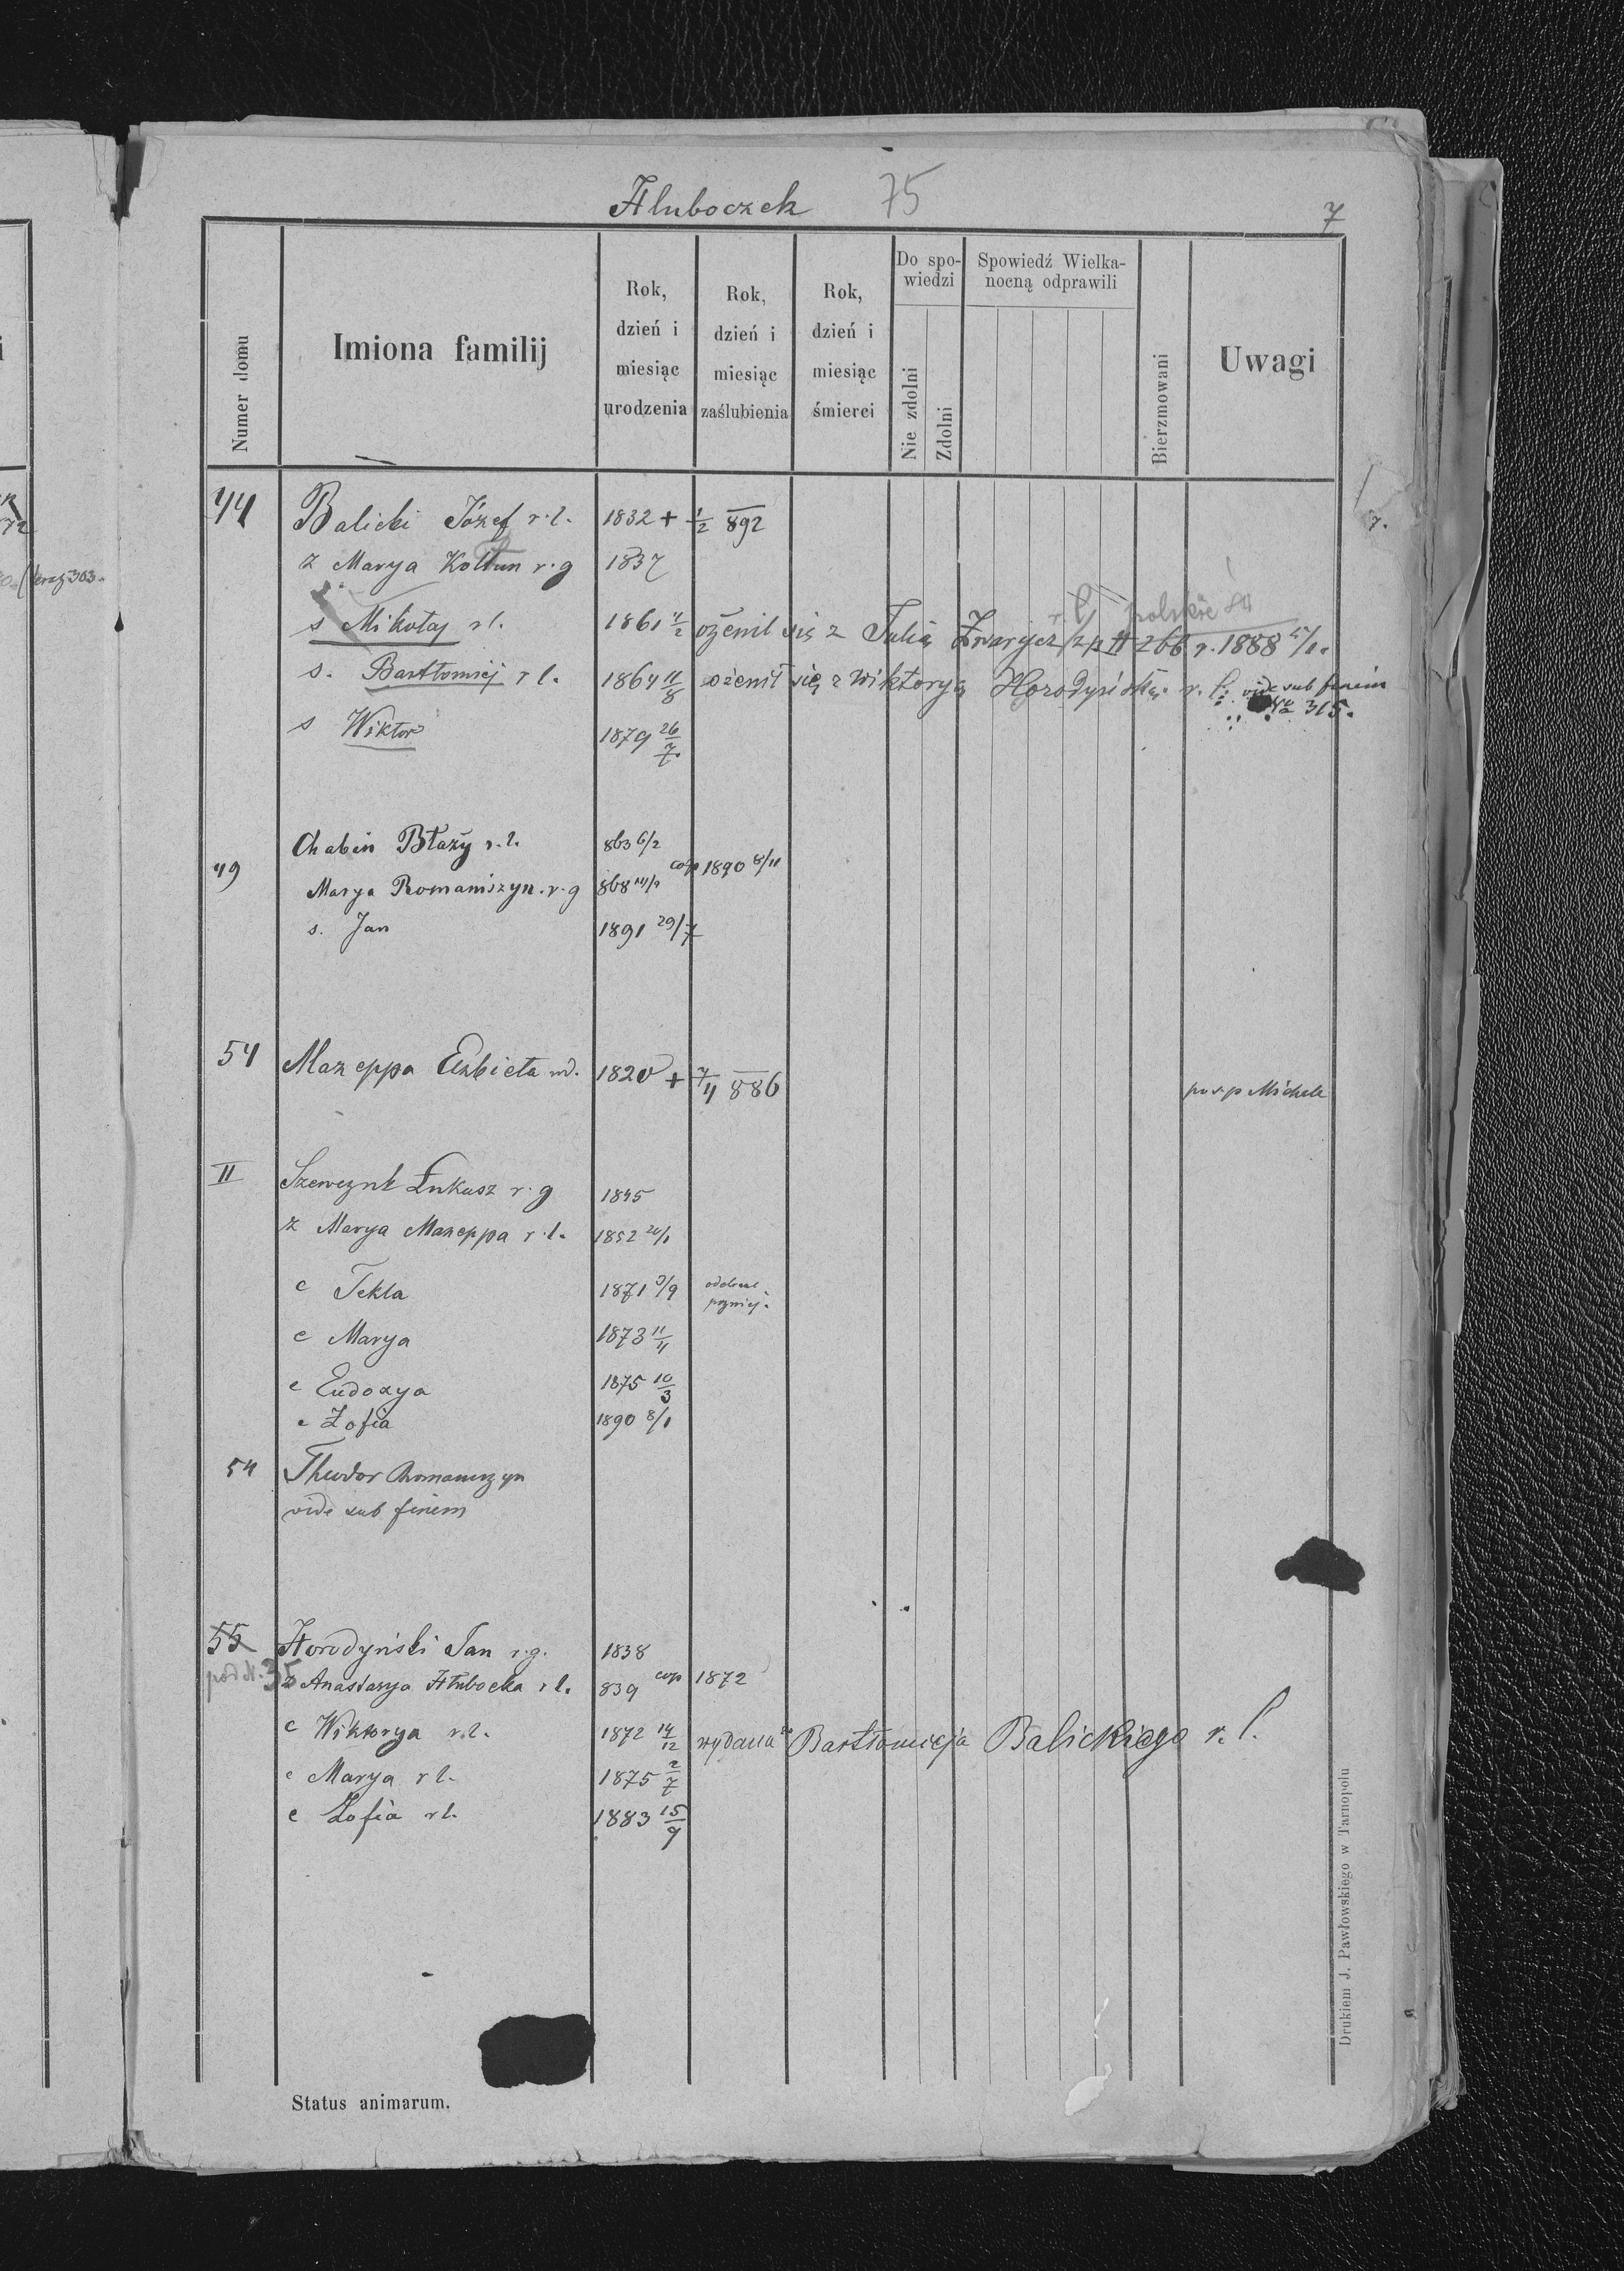 Hluboczek 75
7
Numer domu
Imiona familij
Rok, dzień i miesiąc urodzenia
Rok, dzień i miesiąc zaślubienia
Rok, dzień i miesiąc śmierci
Do spowiedzi
Nie zdolni
Zdolni
Spowiedź Wielkanocną odprawili
Bierzmowani
Uwagi
44 Balicki Józef r. l. 1832 + 1/2 892
z Marya Kołtun r. g 1837
r. g polskie 84
s Mikołaj r l. 1861 ożenił się z Julią Zwarycz 266 r. 1888
s. Bartłomiej r l. 1864 11/8 ożenił się z Wiktoryą Horodyńską r. l. vide sub finem
No 315.
s Wiktor 1879 26/7.
Chabin Błaży r. l. 863 6/2
49 cop 1890 8/11
Marya Romaniszyn. r. g 868
s. Jan 1891 29/7
54 Mazeppa Elżbieta wd. 1820 + 7/4 886 po ś. p Michale
II Szewczuk Łukasz r. g 1845
z Marya Mazeppa r. l. 1852
c Tekla 1871 3/9
c Marya 1873 11/4
c Eudoxya 1875 10/3
c Zofia 1890 8/1
54 Theodor Romaniszyn
vide sub finem
55 Horodyński Jan r. g. 1838
pod N. 35 z Anastazya Hłubocka r l. 839 cop 1872
c Wiktorya r. l. 1872 14/12 wydana za Bartłomieja Balickiego r. l.
c Marya r l. 1875 2/7
c Zofia r l. 1883 15/9
Status animarum.
Drukiem J. Pawłowskiego w Tarnopolu